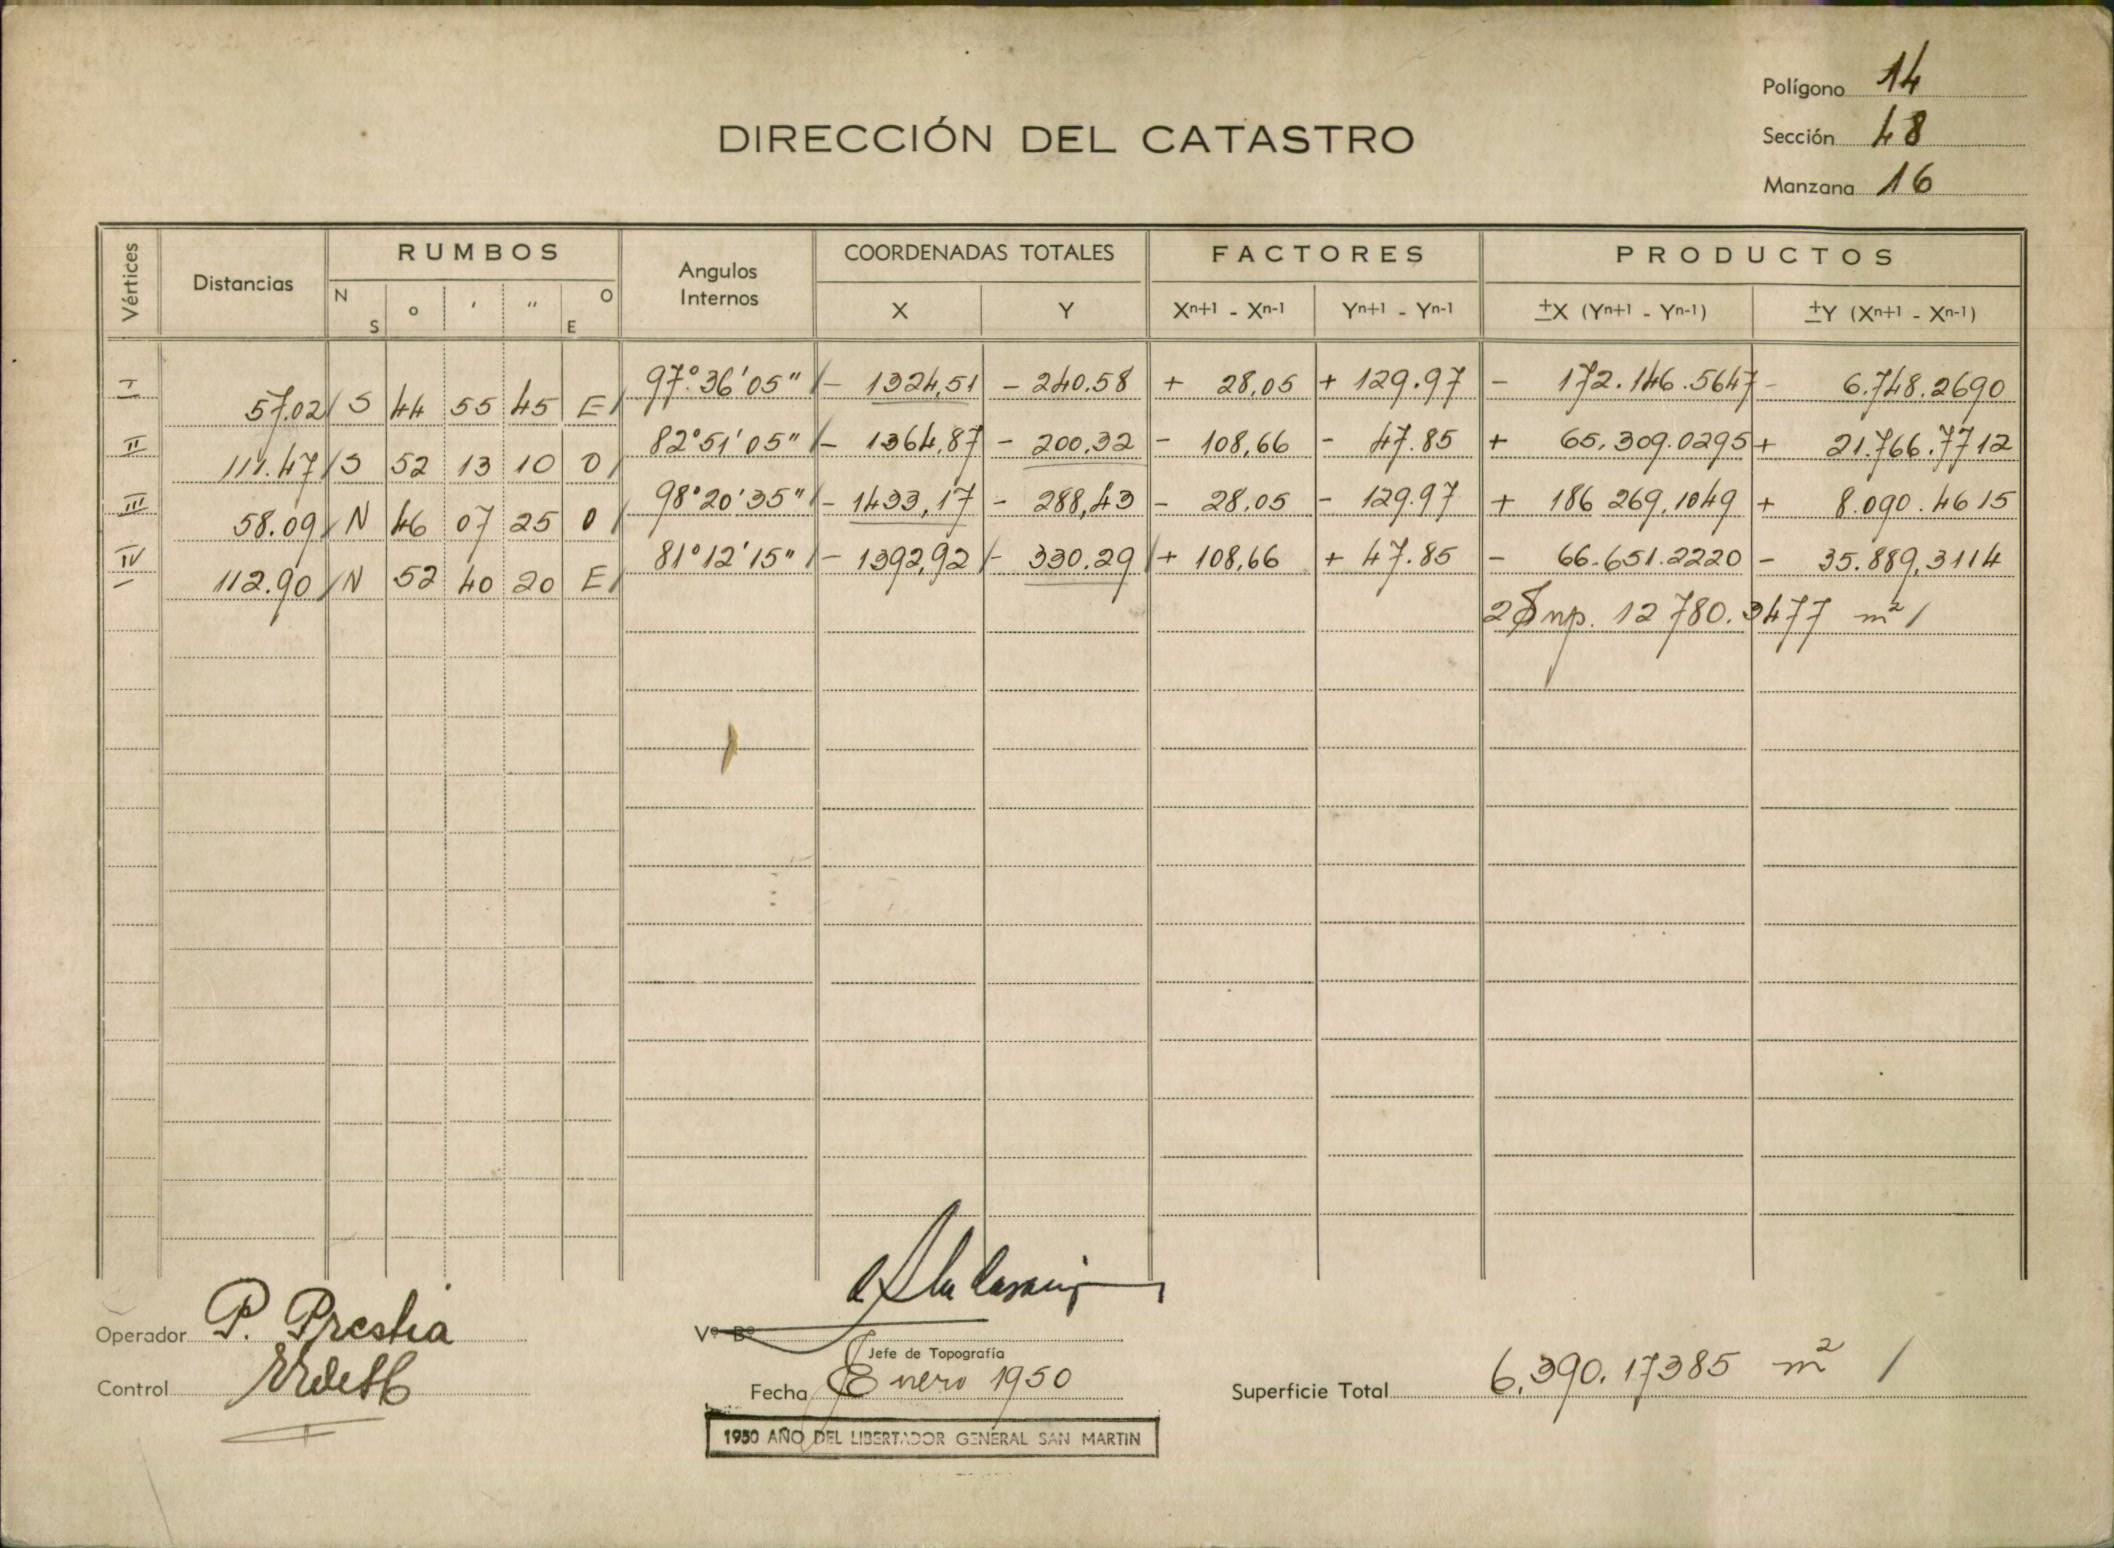 Polígono 14
DIRECCIÓN DEL CATASTRO
Sección 48
Manzana 16
Vértices Distancias RUMBOS Angulos Internos COORDENADAS TOTALES FACTORES PRODUCTOS
N S ° ' " O E X Y Xn+1 - Xn-1 Yn+1 - Yn-1 ±X (Yn+1 - Yn-1) ±Y (Xn+1 - Xn-1)
I 57.02 S 44 55 45 E 97°36'05" - 1324,51 - 240.58 + 28,05 + 129.97 - 172.146.5647 - 6.748.2690
II 111.47 S 52 13 10 O 82°51'05" - 1364,87 - 200,32 - 108,66 - 47.85 + 65.309.0295 + 21.766.7712
III 58.09 N 46 07 25 O 98°20'35" - 1433,17 - 288,43 - 28,05 - 129.97 + 186 269,1049 + 8.090.4615
IV 112.90 N 52 40 20 E 81°12'15" - 1392,92 - 330.29 + 108,66 + 47.85 - 66.651.2220 - 35.889,3114
2 Sup. 12 780.3477 m²
Operador P. Prestia
Vº Bº
Jefe de Topografía
Control
Fecha Enero 1950
Superficie Total 6,390.17385 m²
1950 AÑO DEL LIBERTADOR GENERAL SAN MARTIN